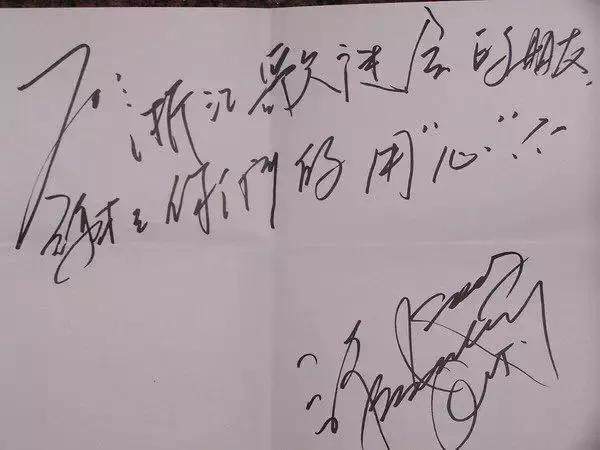 To: 浙江歌迷会的朋友
谢谢你們的用"心"!!